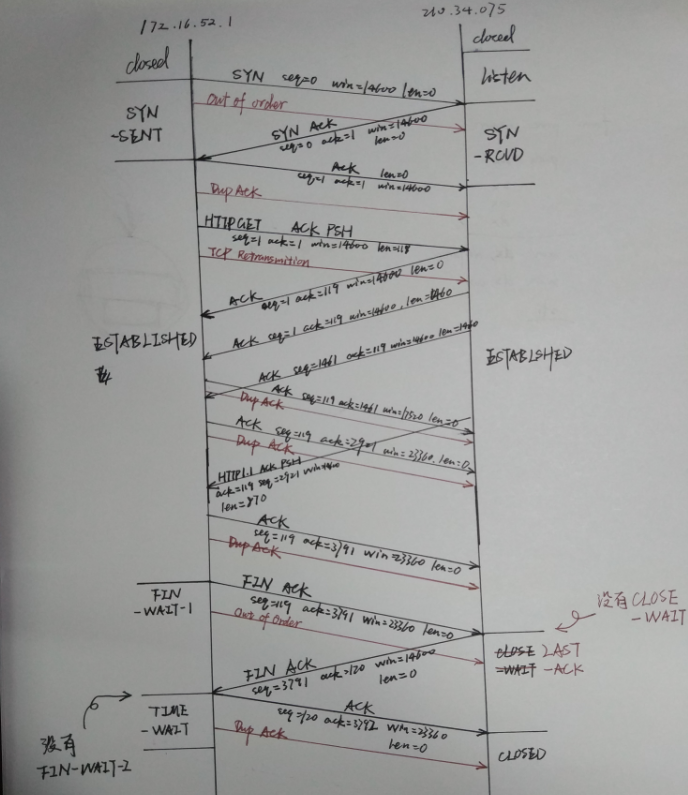 172.16.52.1
210.34.0.75
closed
closed
SYN seq=0 win=14600 len=0
Listen
Out of order
SYN
-SENT
SYN Ack
seq=0 ack=1 win=14600
len=0
SYN
-RCVD
Ack len=0
seq=1 ack=1 win=14600
Dup Ack
HTTP GET ACK PSH
seq=1 ack=1 win=14600 len=118
TCP Retransmition
ACK seq=1 ack=119 win=14600 len=0
ACK seq=1 ack=119 win=14600, len=1460
ESTABLISHED
ACK seq=1461 ack=119 win=14600 len=1460
ESTABLSHED
ACK seq=119 ack=1461 win=17520 len=0
Dup Ack
ACK seq=119 ack=2921 win=23360, len=0
Dup Ack
HTTP1.1 Ack PSH
ack=119 seq=2921 win=14600
len=870
ACK
seq=119 ack=3791 win=23360 len=0
Dup Ack
FIN ACK
seq=119 ack=3791 win=23360 len=0
FIN
-WAIT-1
没有CLOSE
-WAIT
Out of Order
CLOSE LAST
-WAIT -ACK
FIN ACK
seq=3791 ack=120 win=14600
len=0
ACK
seq=120 ack=3792 win=23360
len=0
TIME
-WAIT
Dup Ack
没有
FIN-WAIT-2
CLOSED